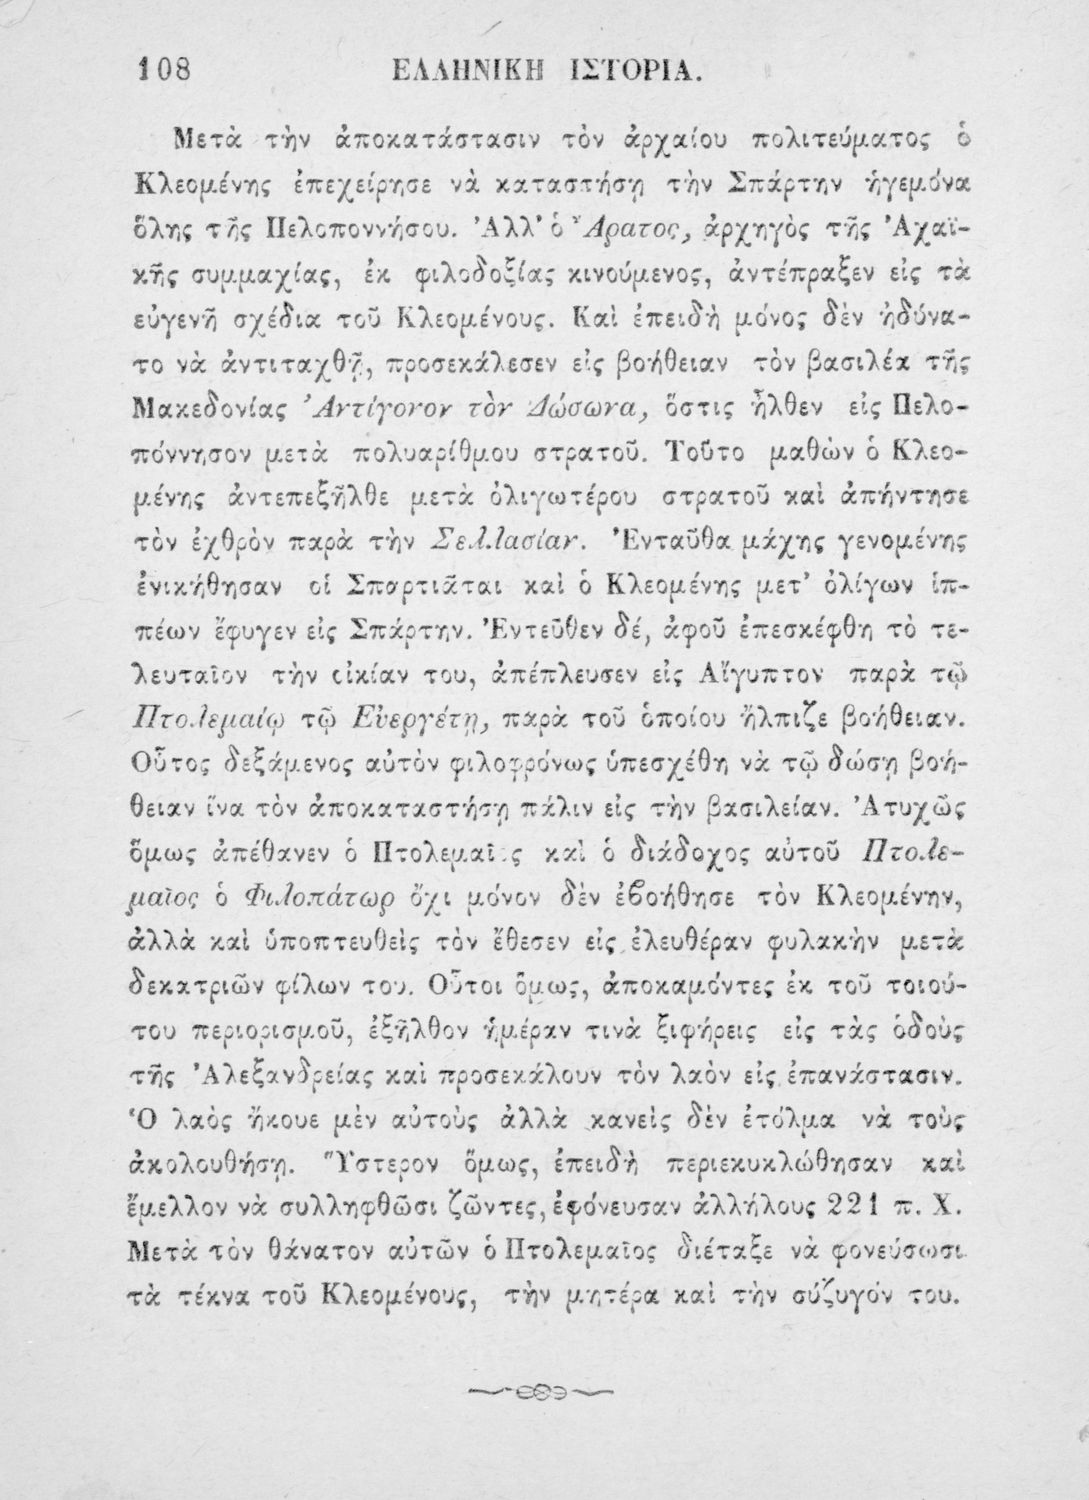 108 ΕΛΛΗΝΙΚΗ ΙΣΤΟΡΙΑ.
Μετὰ τὴν ἀποκατάστασιν τὸν ἀρχαίου πολιτεύματος ὁ
Κλεομένης ἐπεχείρησε νὰ καταστήσῃ τὴν Σπάρτην ἡγεμόνα
ὅλης τῆς Πελοποννήσου. Ἀλλ' ὁ Ἄρατος, ἀρχηγὸς τῆς Ἀχαϊ-
κῆς συμμαχίας, ἐκ φιλοδοξίας κινούμενος, ἀντέπραξεν εἰς τὰ
εὐγενῆ σχέδια τοῦ Κλεομένους. Καὶ ἐπειδὴ μόνος δὲν ἠδύνα-
το νὰ ἀντιταχθῇ, προσεκάλεσεν εἰς βοήθειαν τὸν βασιλέα τῆς
Μακεδονίας Ἀντίγονον τὸν Δώσωνα, ὅστις ἦλθεν εἰς Πελο-
πόννησον μετὰ πολυαρίθμου στρατοῦ. Τοῦτο μαθὼν ὁ Κλεο-
μένης ἀντεπεξῆλθε μετὰ ὀλιγωτέρου στρατοῦ καὶ ἀπήντησε
τὸν ἐχθρὸν παρὰ τὴν Σελλασίαν. Ἐνταῦθα μάχης γενομένης
ἐνικήθησαν οἱ Σπαρτιᾶται καὶ ὁ Κλεομένης μετ' ὀλίγων ἱπ-
πέων ἔφυγεν εἰς Σπάρτην. Ἐντεῦθεν δέ, ἀφοῦ ἐπεσκέφθη τὸ τε-
λευταῖον τὴν οἰκίαν του, ἀπέπλευσεν εἰς Αἴγυπτον παρὰ τῷ
Πτολεμαίῳ τῷ Εὐεργέτῃ, παρὰ τοῦ ὁποίου ἤλπιζε βοήθειαν.
Οὗτος δεξάμενος αὐτὸν φιλοφρόνως ὑπεσχέθη νὰ τῷ δώσῃ βοή-
θειαν ἵνα τὸν ἀποκαταστήσῃ πάλιν εἰς τὴν βασιλείαν. Ἀτυχῶς
ὅμως ἀπέθανεν ὁ Πτολεμαῖος καὶ ὁ διάδοχος αὐτοῦ Πτολε-
μαῖος ὁ Φιλοπάτωρ ὄχι μόνον δὲν ἐβοήθησε τὸν Κλεομένην,
ἀλλὰ καὶ ὑποπτευθεὶς τὸν ἔθεσεν εἰς ἐλευθέραν φυλακὴν μετὰ
δεκατριῶν φίλων του. Οὗτοι ὅμως, ἀποκαμόντες ἐκ τοῦ τοιού-
του περιορισμοῦ, ἐξῆλθον ἡμέραν τινὰ ξιφήρεις εἰς τὰς ὁδοὺς
τῆς Ἀλεξανδρείας καὶ προσεκάλουν τὸν λαὸν εἰς ἐπανάστασιν.
Ὁ λαὸς ἤκουε μὲν αὐτοὺς ἀλλὰ κανεὶς δὲν ἐτόλμα νὰ τοὺς
ἀκολουθήσῃ. Ὕστερον ὅμως, ἐπειδὴ περιεκυκλώθησαν καὶ
ἔμελλον νὰ συλληφθῶσι ζῶντες, ἐφόνευσαν ἀλλήλους 221 π. Χ.
Μετὰ τὸν θάνατον αὐτῶν ὁ Πτολεμαῖος διέταξε νὰ φονεύσωσι
τὰ τέκνα τοῦ Κλεομένους, τὴν μητέρα καὶ τὴν σύζυγόν του.